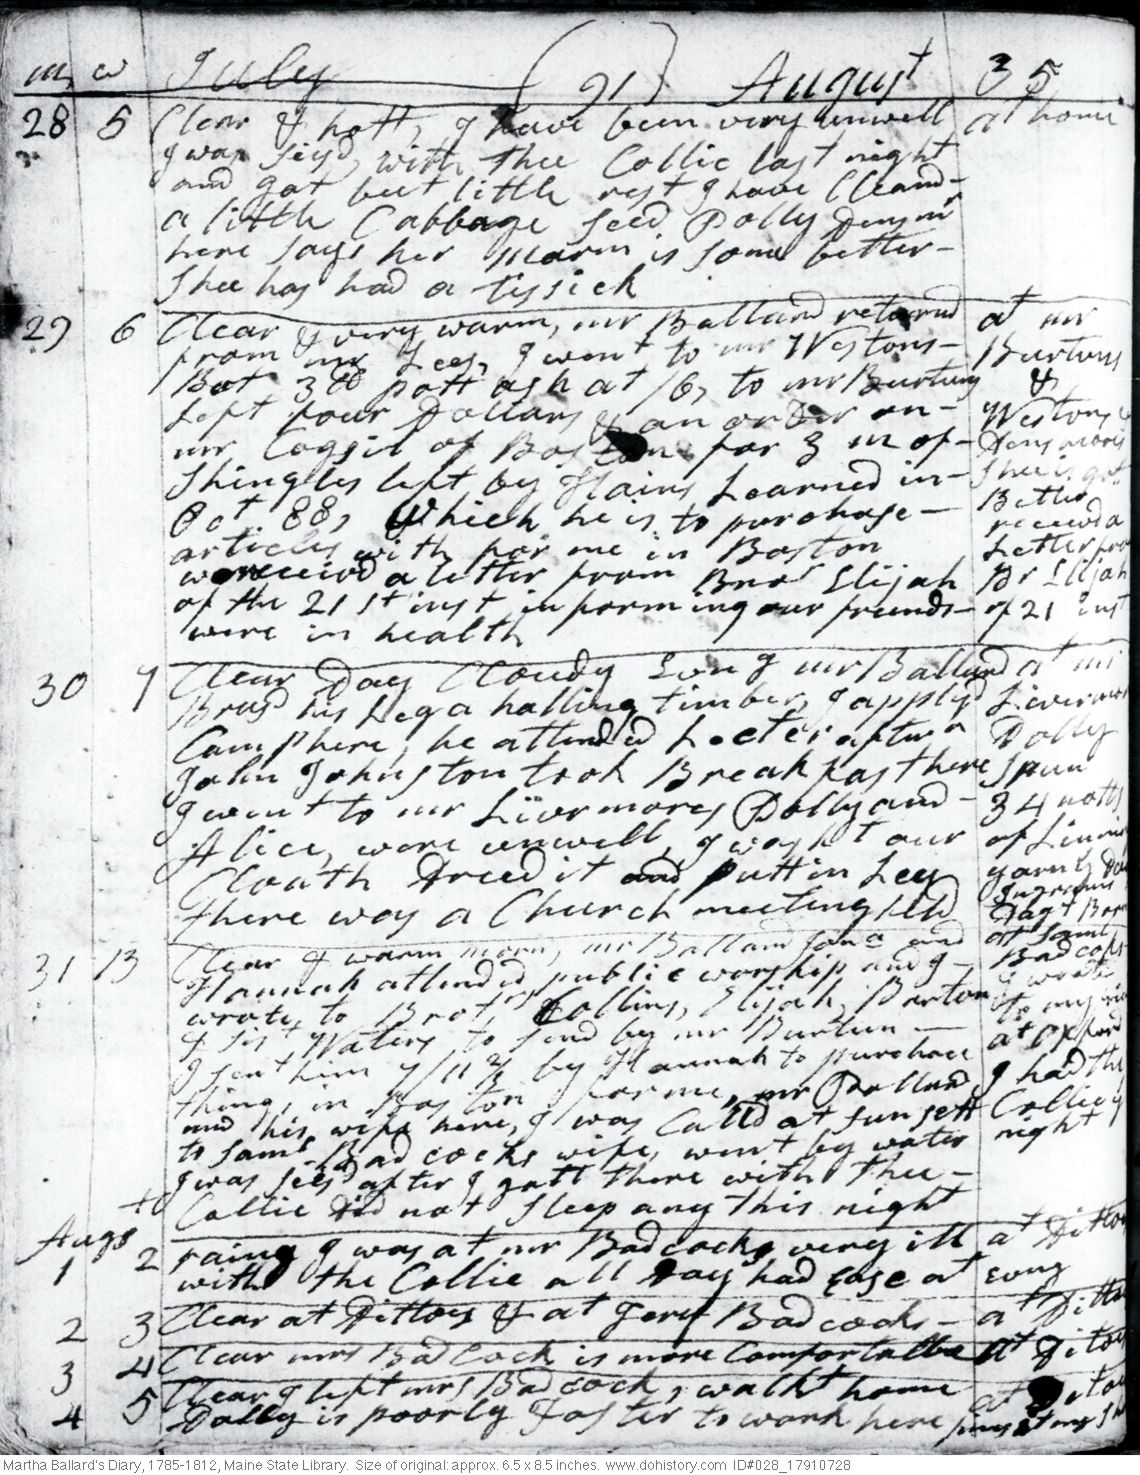 m w July (91) August 35
28 5 Clear & hott, I have been very unwell at home
I was seisd with thee Collic last night
and got but little rest I have Cleand
a little Cabbage seed Polly
here says her marm is some better
shee has had a tissick
29 6 Clear & very warm, mr Ballard returnd at mr
from mr Lees, I went to mr Westons Burtuns
Bot 3 lb pott ash at /6, to mr Burtuns &
Left four Dollars & an order on Westons
mr Coggil of Boston for 3 m of
shingles left by Hains Learned in shee is got
Oct 88, Which he is to purchase Better
articles with for me in Boston receivd a
we receivd a letter from Bror Elijah Letter from
of the 21st inst informing our friends Br Elijah
were in health of 21 inst
30 7 Clear Day Cloudy Evng mr Ballard at mr
Brusd his Leg a halling timber, I applyd Livermors
Camphere, he attended Lecter aftern Dolly
John Johnston took Breakfast here spun
I went to mr Livermores Dolly and 34 notts
Alice, were unwell, I washt our of Linnin
Cloath Dreed it and putt in Ley yarn
There was a Church meeting held
31 13 Clear & warm morn, mr Ballard and at saml
Hannah attended public worship and I Badcoks
wrote to Brotrs Collins, Elijah, Barton I wrote
& sist Waters to send by mr Burtun to my
I sent him 7/11 2/3 by Hannah to purchase at oxford
things in Boston for me, mr Pollard I had the
and his wife here, I was Calld at sunsett Collic
to saml Badcocks wife, went by water night
I was seisd after I gott there with thee
Collic Did not sleep any this night
Augst
1 2 raing I was at mr Badcocks very ill at Dittos
with the Collic all Day had ease at Evng
2 3 Clear at Dittoes & at Jery Badcocks at Dittos
3 4 Clear mrs Badcock is more Comfortable at Ditos
4 5 Clear I left mrs Badcock, walkt home at Ditos
Dolly is poorly Foster to work here
Martha Ballard's Diary, 1785-1812, Maine State Library. Size of original: approx. 6.5 x 8.5 inches. www.dohistory.com ID#028_17910728